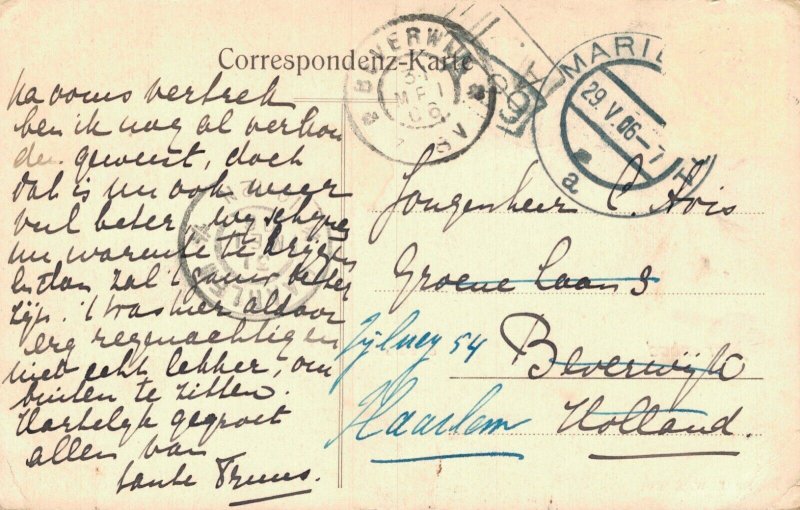 Correspondenz-Karte
Na ooms vertrek
ben ik nog al verkou
den geweest, doch
dat is nu ook weer
veel beter, wij schijnen
nu warmte te krijgen
en dan zal 't gauw beter
zijn. 't Was hier aldoor
erg regenachtig en
niet echt lekker, om
buiten te zitten.
Hartelijk gegroet
allen van
tante Truus.
BEVERWIJK
MARIE
29 V. 06 - 7
a
Jongenheer C.
Groene laan 3
Zijlweg 54
Beverwijk
Haarlem Holland.